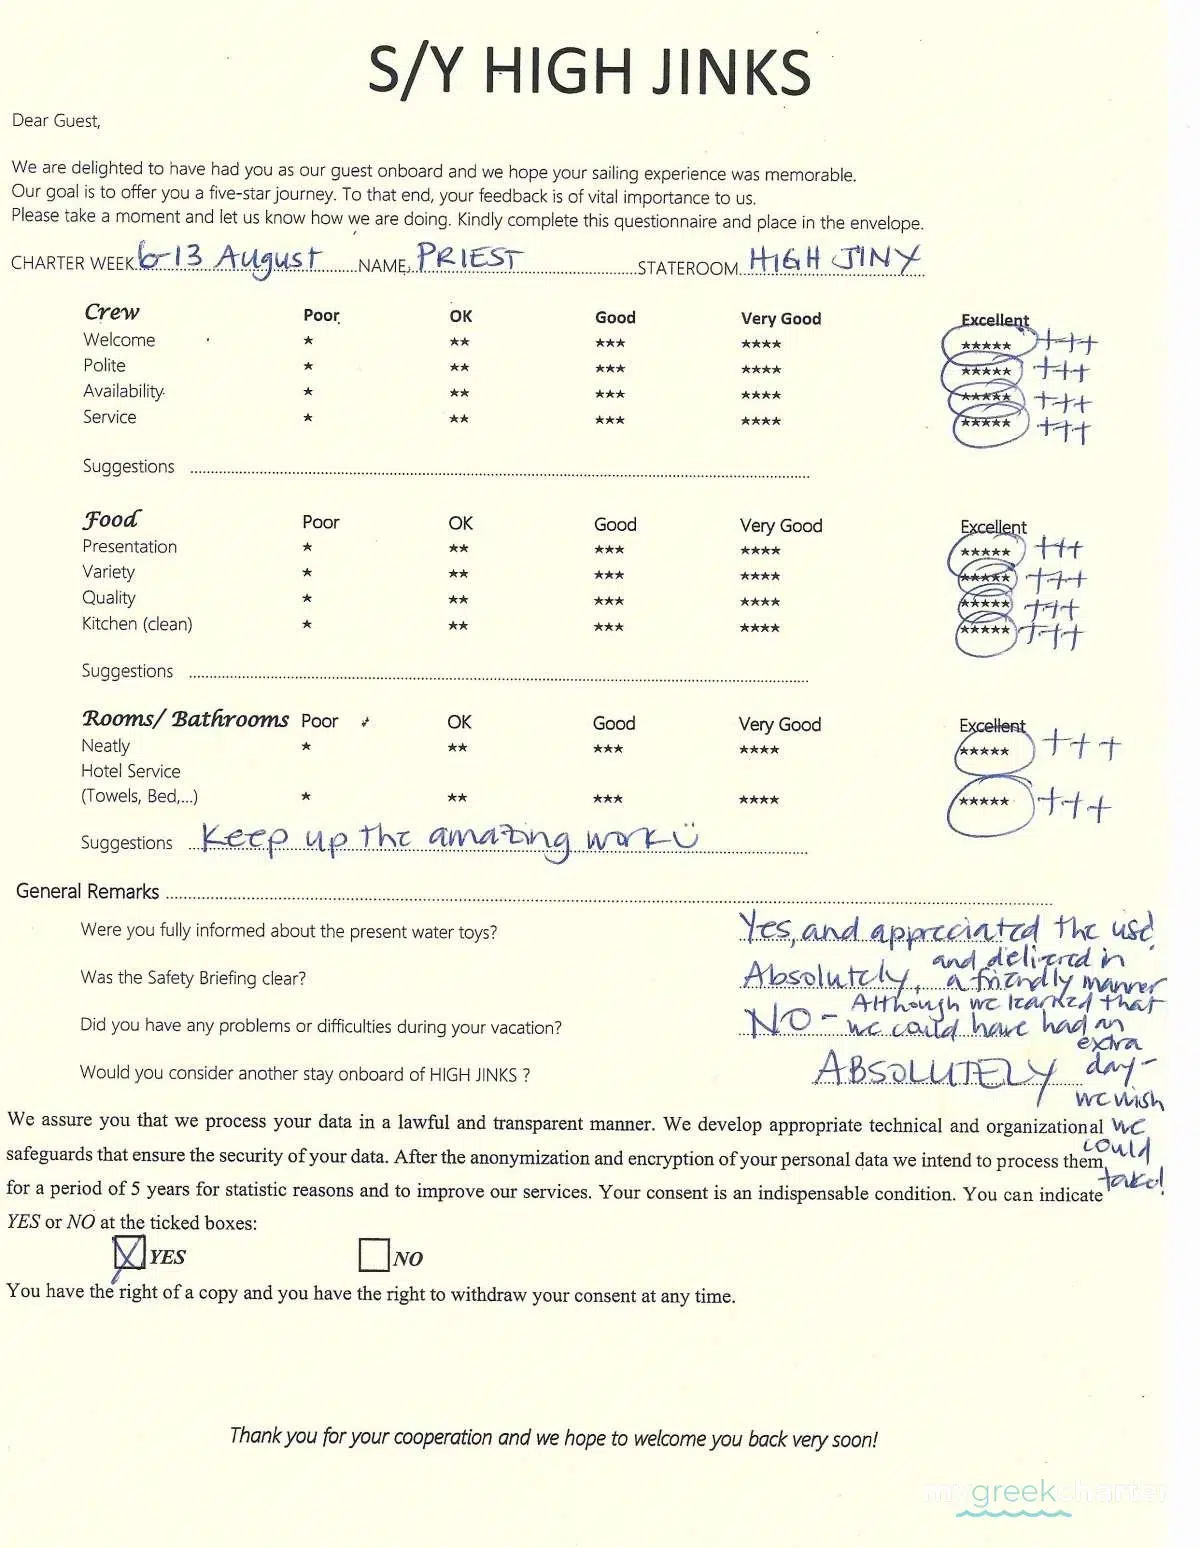 S/Y HIGH JINKS
Dear Guest,
We are delighted to have had you as our guest onboard and we hope your sailing experience was memorable.
Our goal is to offer you a five-star journey. To that end, your feedback is of vital importance to us.
Please take a moment and let us know how we are doing. Kindly complete this questionnaire and place in the envelope.
CHARTER WEEK 6-13 August NAME PRIEST STATEROOM HIGH JINY
Crew Poor OK Good Very Good Excellent
Welcome ★ ★★ ★★★ ★★★★ ★★★★★ +++
Polite ★ ★★ ★★★ ★★★★ ★★★★★ +++
Availability ★ ★★ ★★★ ★★★★ ★★★★★ +++
Service ★ ★★ ★★★ ★★★★ ★★★★★ +++
Suggestions
Food Poor OK Good Very Good Excellent
Presentation ★ ★★ ★★★ ★★★★ ★★★★★ +++
Variety ★ ★★ ★★★ ★★★★ ★★★★★ +++
Quality ★ ★★ ★★★ ★★★★ ★★★★★ +++
Kitchen (clean) ★ ★★ ★★★ ★★★★ ★★★★★ +++
Suggestions
Rooms/ Bathrooms Poor OK Good Very Good Excellent
Neatly ★ ★★ ★★★ ★★★★ ★★★★★ +++
Hotel Service
(Towels, Bed,...) ★ ★★ ★★★ ★★★★ ★★★★★ +++
Suggestions Keep up the amazing work
General Remarks
Were you fully informed about the present water toys? Yes, and appreciated the use
Was the Safety Briefing clear? Absolutely, and delivered in
a friendly manner
Did you have any problems or difficulties during your vacation? NO - Although we learned that
we could have had an
extra
day -
we wish
we
could
take!
Would you consider another stay onboard of HIGH JINKS ? ABSOLUTELY
We assure you that we process your data in a lawful and transparent manner. We develop appropriate technical and organizational
safeguards that ensure the security of your data. After the anonymization and encryption of your personal data we intend to process them
for a period of 5 years for statistic reasons and to improve our services. Your consent is an indispensable condition. You can indicate
YES or NO at the ticked boxes:
YES NO
You have the right of a copy and you have the right to withdraw your consent at any time.
Thank you for your cooperation and we hope to welcome you back very soon!
mygreekcharter